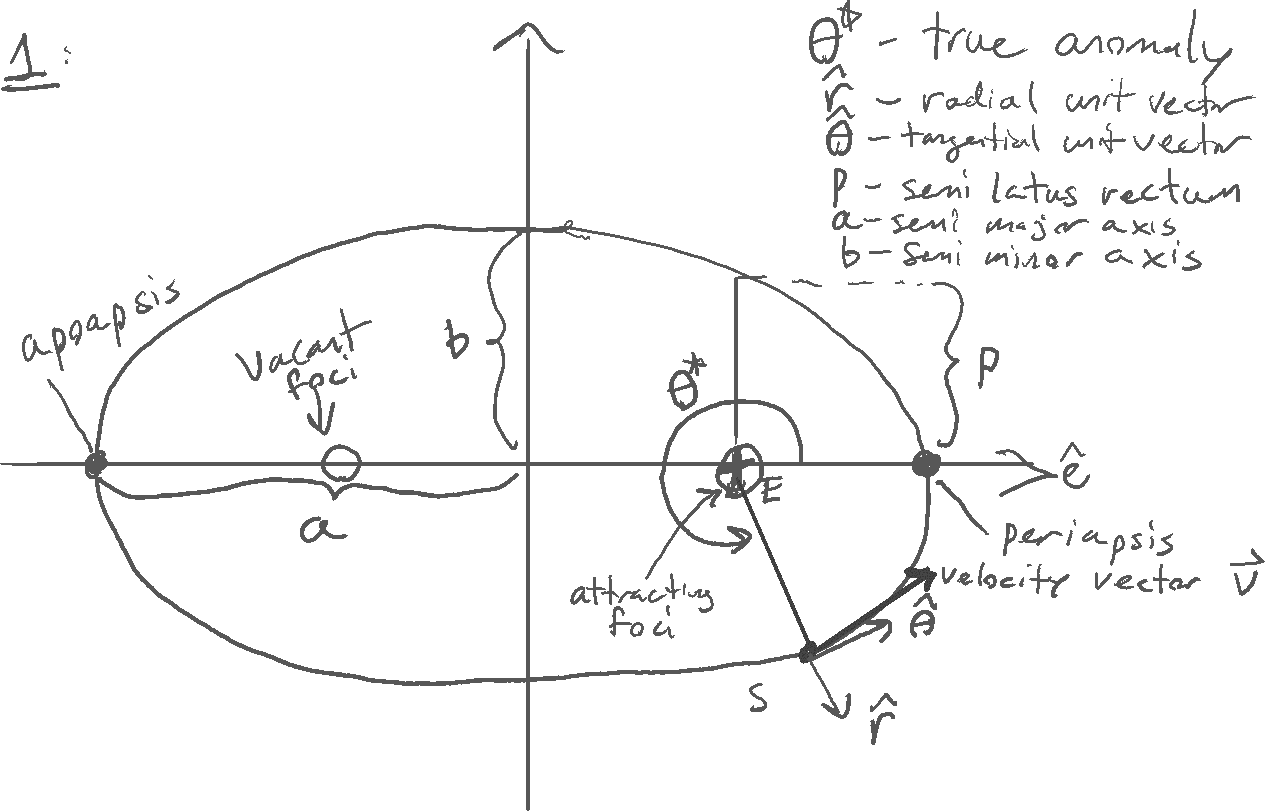 1:
θ* - true anomaly
r̂ - radial unit vector
θ̂ - tangential unit vector
P - semi latus rectum
a - semi major axis
b - semi minor axis
apoapsis
vacant
foci
b
θ*
P
E
ê
a
periapsis
attracting
foci
velocity vector v⃗
θ̂
S
r̂